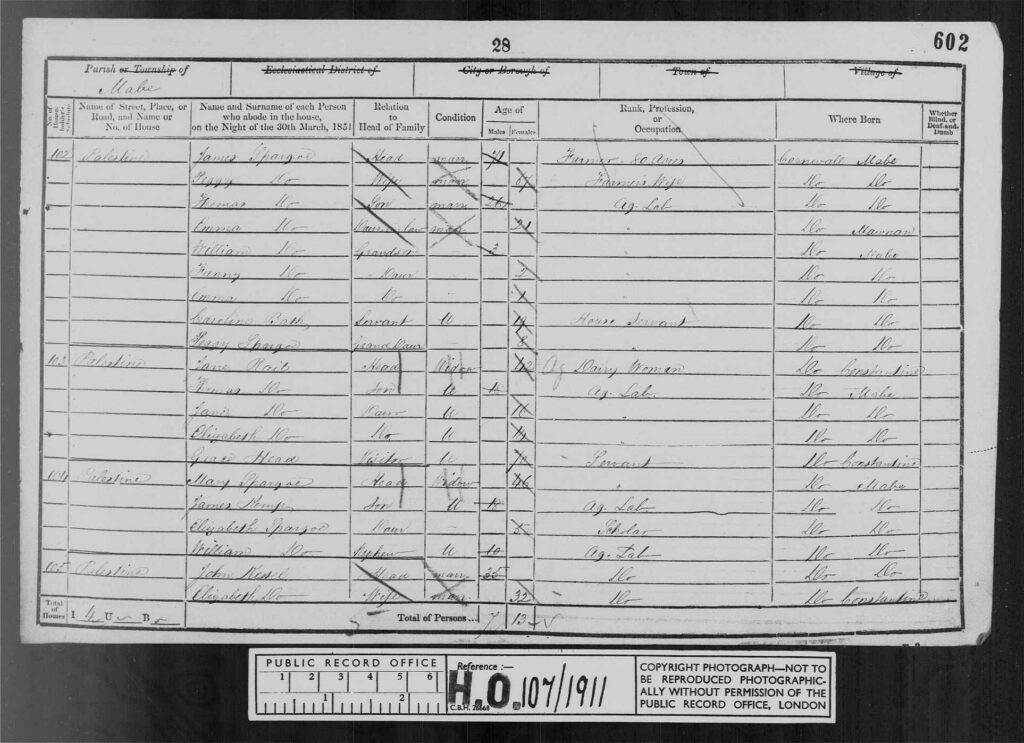 28
602
Parish or Township of Ecclesiastical District of City or Borough of Town of Village of
Mabe
No. of House- holder's Schedule Name of Street, Place, or Road, and Name or No. of House Name and Surname of each Person who abode in the house, on the Night of the 30th March, 1851 Relation to Head of Family Condition Age of Males Females Rank, Profession, or Occupation Where Born Whether Blind, or Deaf-and-Dumb
102 Palestine James Spargoe Head marr 71 Farmer - 80 Acres Cornwall Mabe
Peggy Do Wife marr 67 Farmer's Wife Do Do
Thomas Do Son marr 26 Ag. Lab Do Do
Emma Do Daur in law marr 21 Do Mawnan
William Do Grandson 3 Do Mabe
Fanny Do Daur 2 Do Do
Emma Do Do 1 Do Do
Caroline Bath Servant U 19 House Servant Do Do
Peggy Spargoe Grand Daur 8 Do Do
103 Palestine Jane Rail Head Widow 42 Ag Dairy Woman Do Constantine
Thomas Do Son U 18 Ag. Lab Do Mabe
Jane Do Daur U 16 Do Do
Elizabeth Do Do U 14 Do Do
Grace Head Visitor U 70 Servant Do Constantine
104 Palestine Mary Spargoe Head Widow 46 Do Mabe
James Kemp Son U 18 Ag. Lab Do Do
Elizabeth Spargoe Daur 5 Scholar Do Do
William Do Nephew U 10 Ag. Lab Do Do
105 Palestine John Kessel Head marr 35 Do Do Do
Elizabeth Do Wife marr 32 Do Do Constantine
Total of Houses I 4 U B 5 Total of Persons... 7 13
PUBLIC RECORD OFFICE
1 2 3 4 5 6
1 2
Reference :—
H.O. 107/1911
C.B.H. 26668
COPYRIGHT PHOTOGRAPH—NOT TO
BE REPRODUCED PHOTOGRAPHIC-
ALLY WITHOUT PERMISSION OF THE
PUBLIC RECORD OFFICE, LONDON